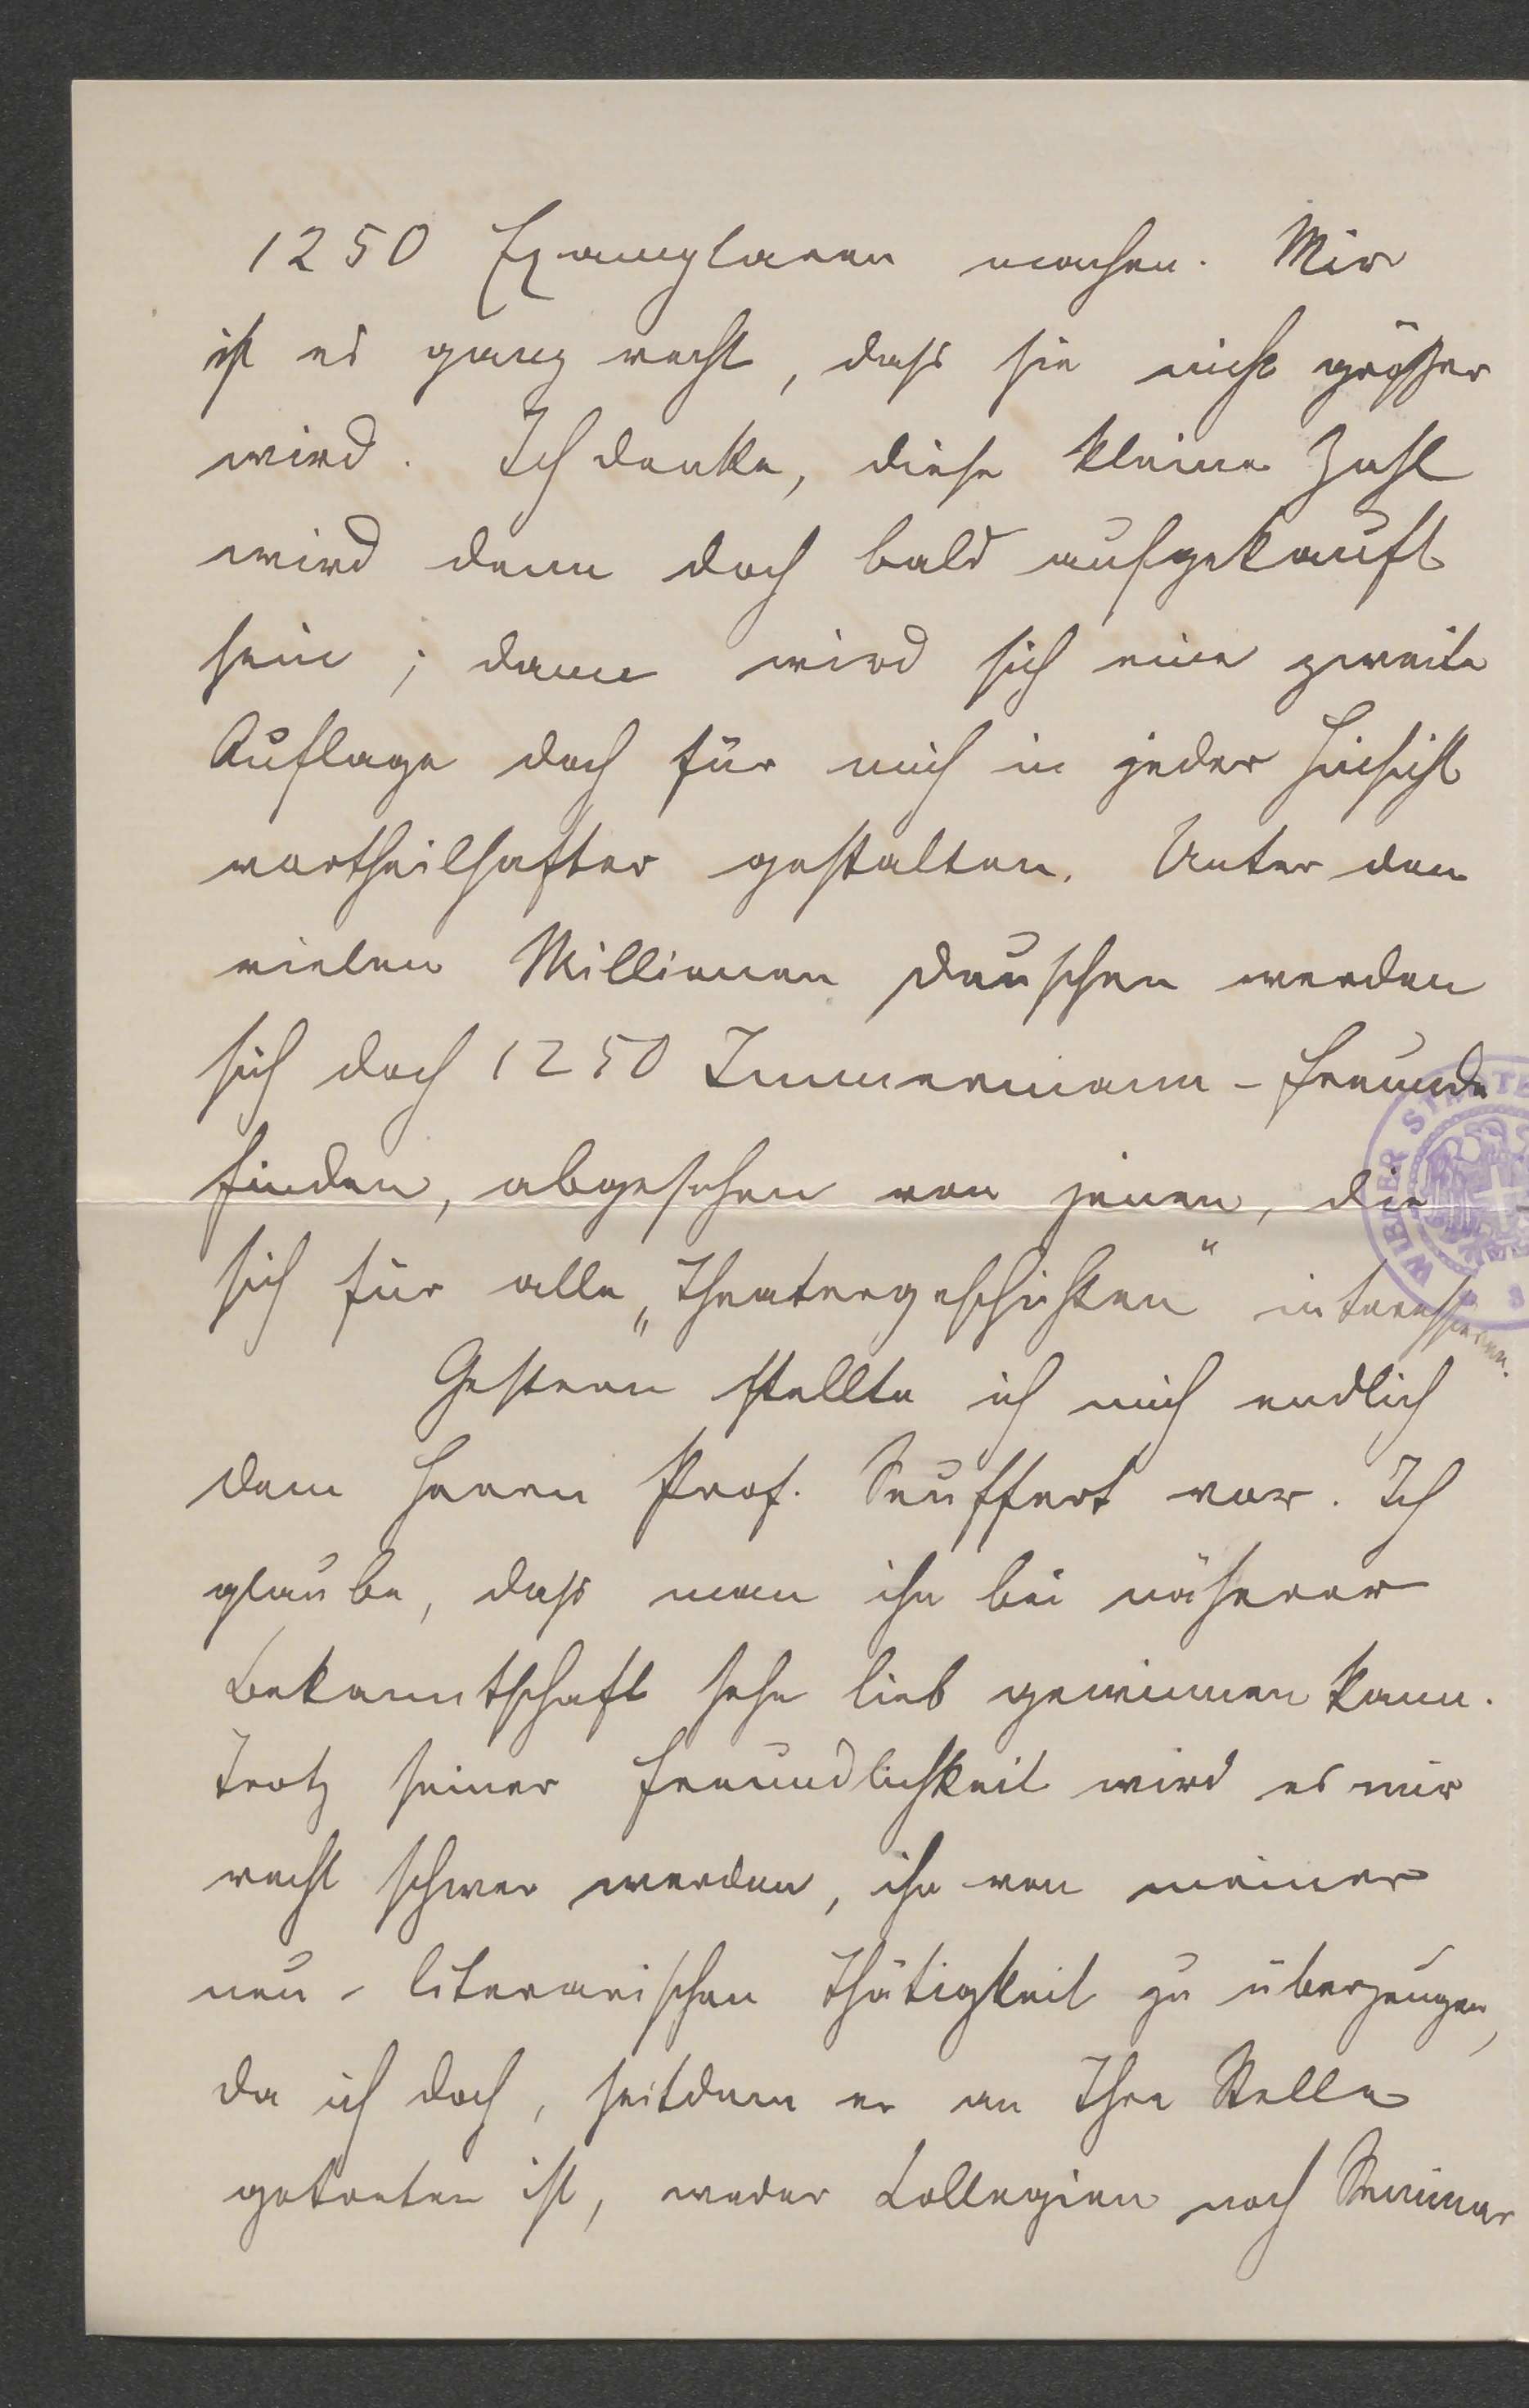 1250 Exemplaren machen. Mir
ist es ganz recht, dass sie nicht größer
wird. Ich denke, diese kleine Zahl
wird denn doch bald aufgekauft
sein; dann wird sich eine zweite
Auflage doch für mich in jeder Hinsicht
vortheilhafter gestalten. Unter den
vielen Millionen Deutschen werden
sich doch 1250 Immermann-Freunde
finden, abgesehen von jenen, die
sich für alle „Theatergeschichten“ interessieren.
Gestern stellte ich mich endlich
dem Herrn Prof. Seuffert vor. Ich
glaube, dass man ihn bei näherer
Bekanntschaft sehr lieb gewinnen kann.
Trotz seiner Freundlichkeit wird es mir
recht schwer werden, ihn von meiner
neu-literarischen Thätigkeit zu überzeugen,
da ich doch, seitdem er an Ihre Stelle
getreten ist, weder Collegien noch Seminar
WIENER STADTB